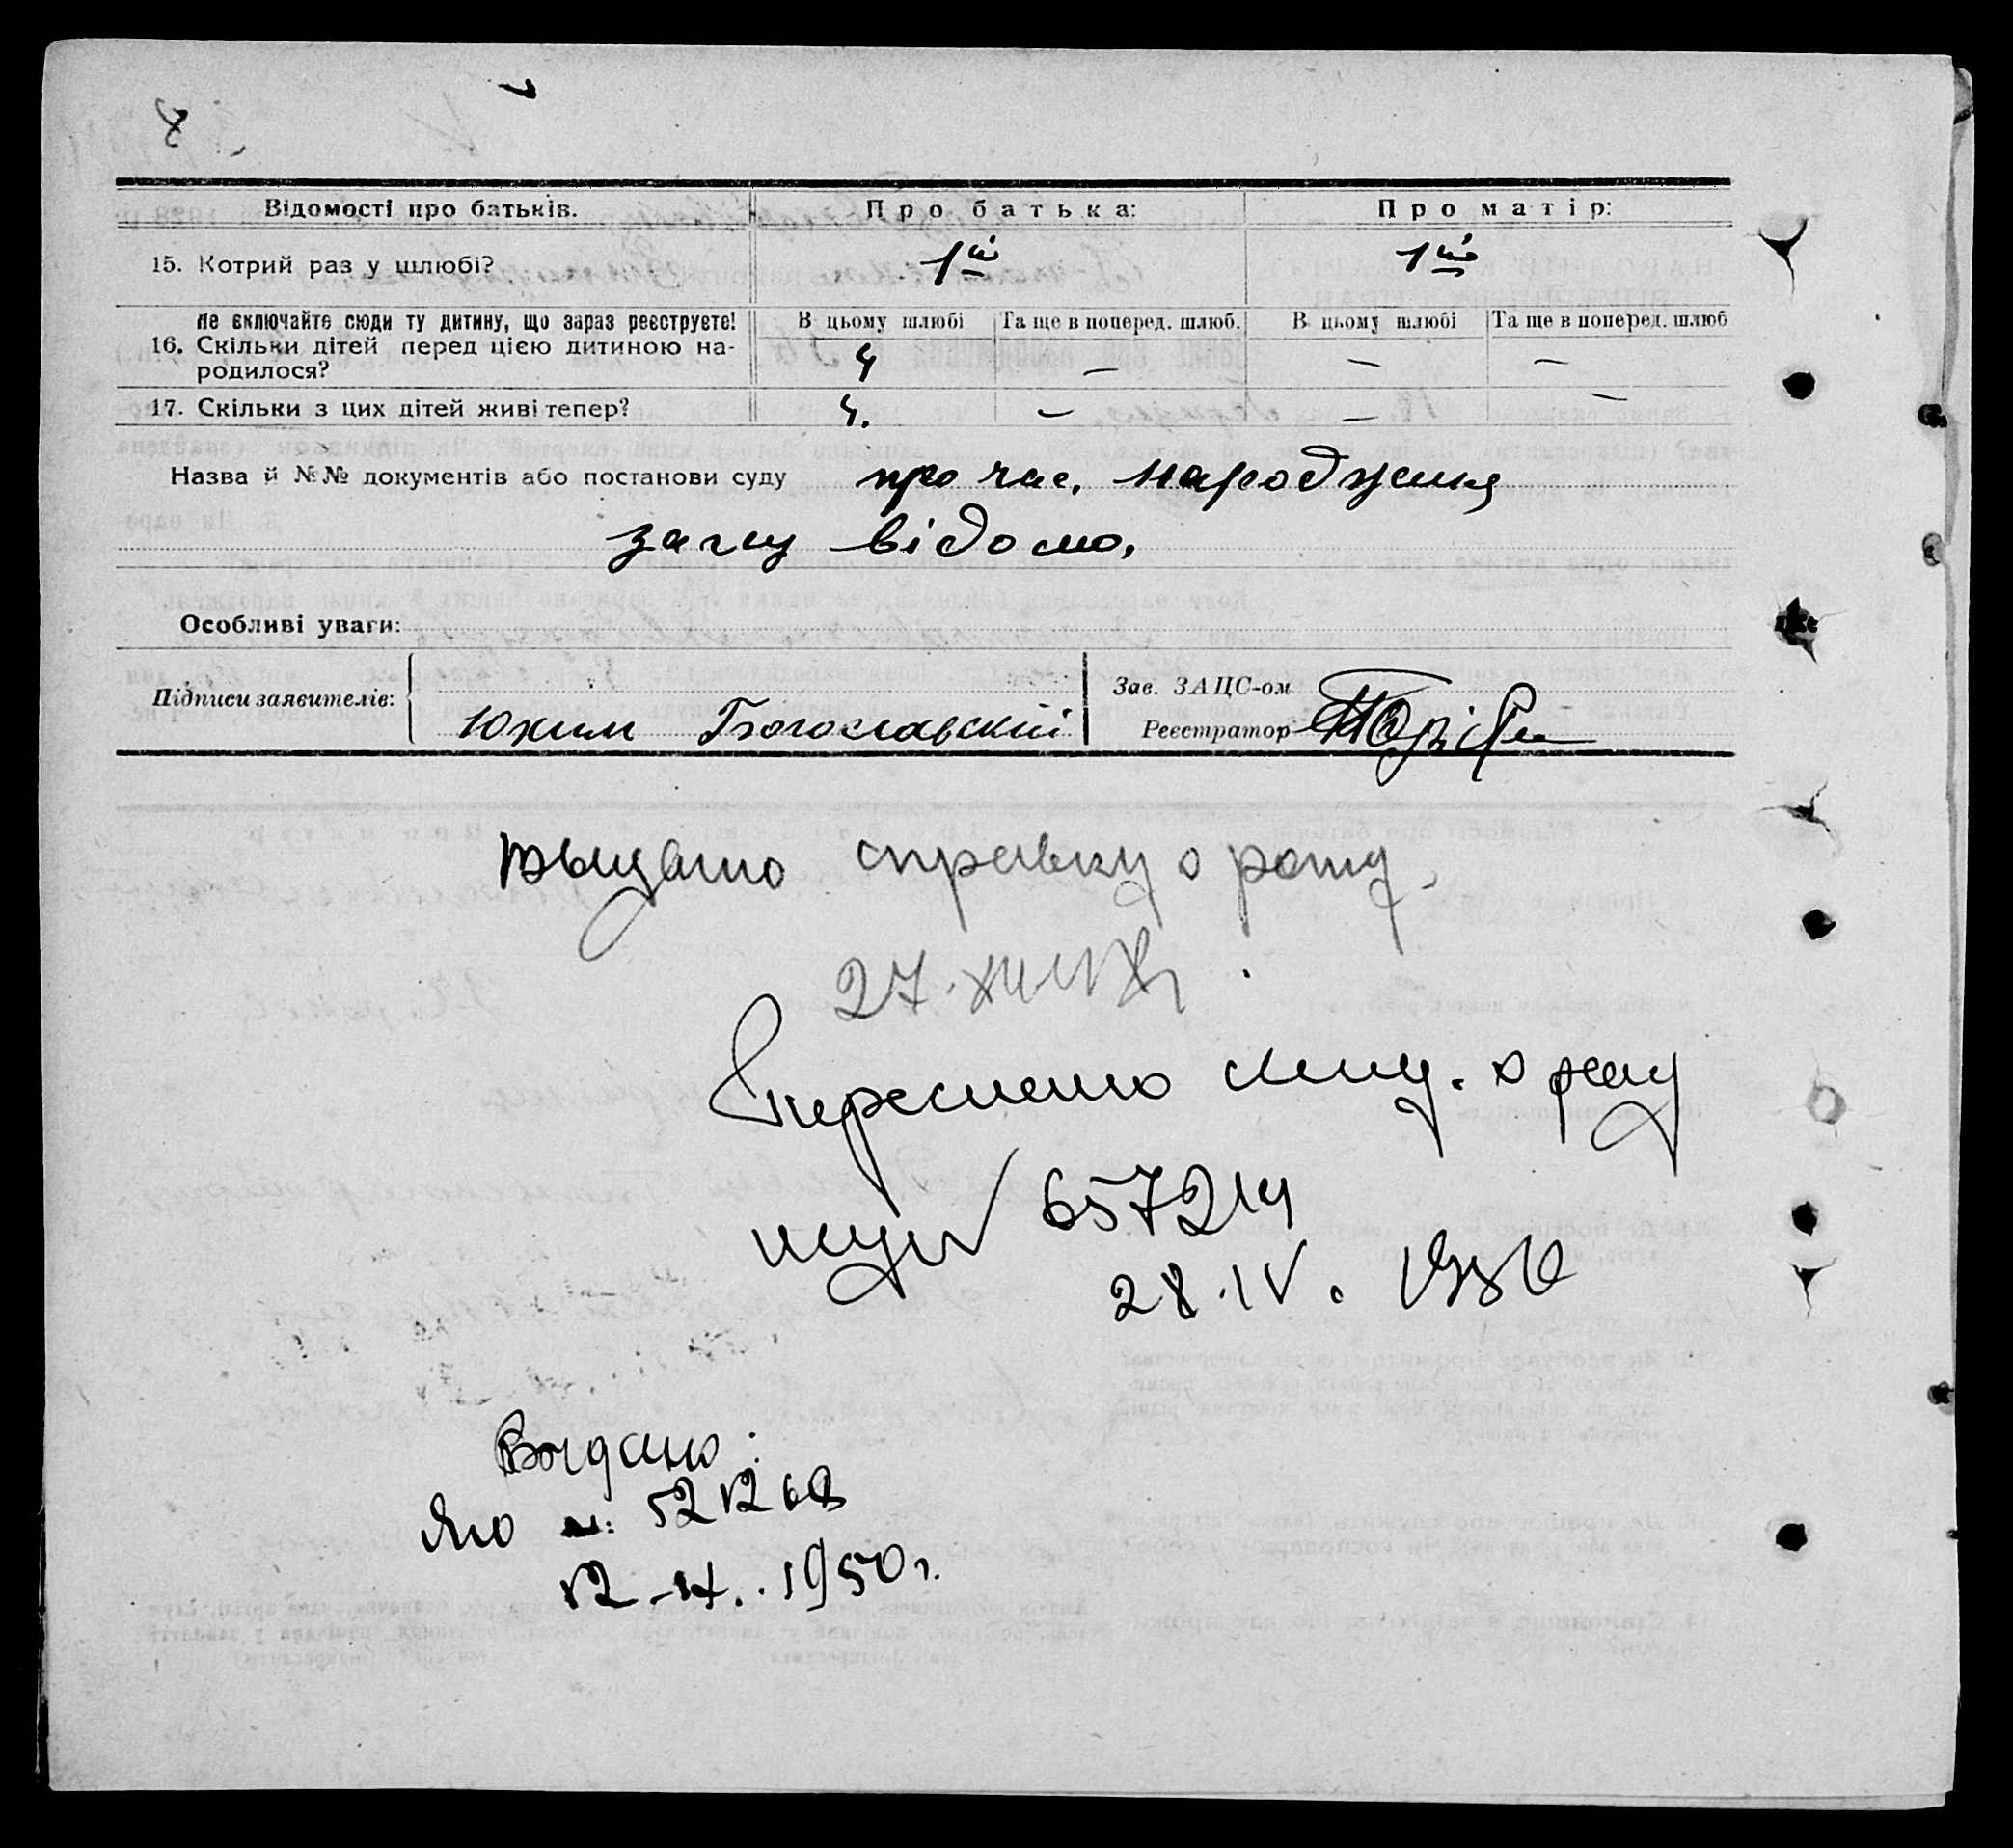 Відомості про батьків. Про батька: Про матір:
15. Котрий раз у шлюбі? 1й 1й
Не включайте сюди ту дитину, що зараз реєструєте! В цьому шлюбі Та ще в поперед. шлюб. В цьому шлюбі Та ще в поперед. шлюб
16. Скільки дітей перед цією дитиною на-
родилося? 4 — — —
17. Скільки з цих дітей живі тепер? 4. — — —
Назва й №№ документів або постанови суду про час, народження
загсу відомо.
Особливі уваги:
Підписи заявителів: Зав. ЗАЦС-ом
Юхим Богославский Реєстратор
Выдано справку о рожд.
27.
о рожд
657214
28.IV.
Выдано:
ЯЮ
1950 г.